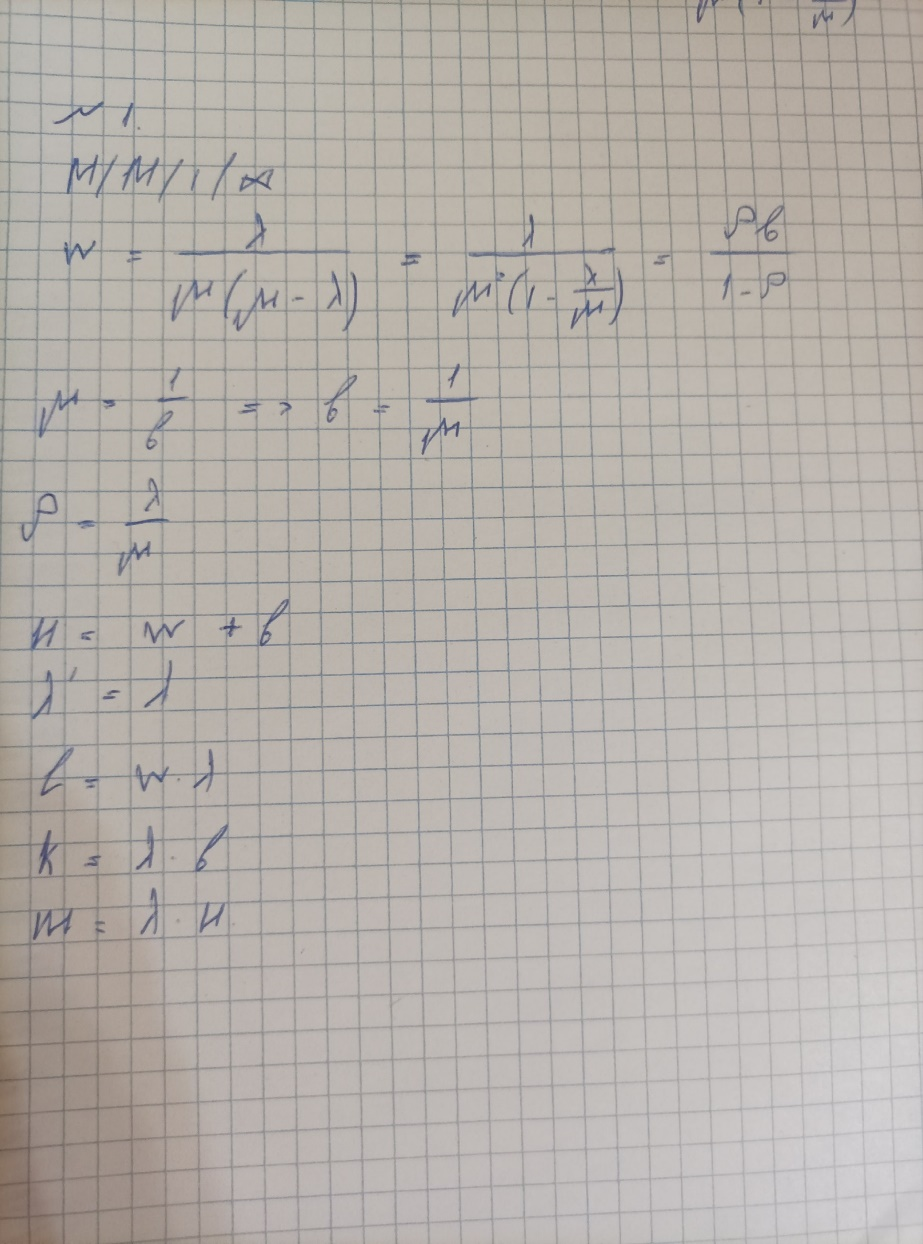 μ(1 - λ/μ)
~ 1.
M/M/1/∞
w = λ/(μ(μ - λ)) = λ/(μ²(1 - λ/μ)) = ρb/(1-ρ)
μ = 1/b => b = 1/μ
ρ = λ/μ
u = w + b
λ' = λ
l = w · λ
k = λ · b
m = λ · u